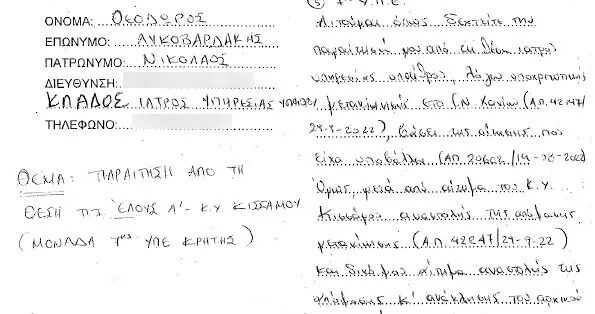 ΟΝΟΜΑ: ΘΕΟΔΩΡΟΣ
ΕΠΩΝΥΜΟ: ΛΥΚΟΒΑΡΔΑΚΗΣ
ΠΑΤΡΩΝΥΜΟ: ΝΙΚΟΛΑΟΣ
ΔΙΕΥΘΥΝΣΗ:
ΚΛΑΔΟΣ ΙΑΤΡΟΣ ΥΠΗΡΕΣΙΑΣ ΥΠΑΙΘΡΟΥ
ΤΗΛΕΦΩΝΟ:
ΘΕΜΑ: ΠΑΡΑΙΤΗΣΗ ΑΠΟ ΤΗ
ΘΕΣΗ ΤΗΣ ΕΛΟΥΣ Λ' - Κ.Υ. ΚΙΣΣΑΜΟΥ
(ΜΟΝΑΔΑ 7ης ΥΠΕ ΚΡΗΤΗΣ)
Υ.Π.Ε.
Αιτούμαι όπως δεχτείτε την
παραίτησή μου από τη θέση ιατρού
υπηρεσίας υπαίθρου, λόγω υποχρεωτικής
μετακίνησης στο Γ.Ν. Χανίων (Α.Π. 42247/
29-9-2022), βάσει της αίτησης που
είχα υποβάλλει (ΑΠ
Όμως, μετά από αίτημα του Κ.Υ.
Κισάμου αναστολής της απόφασης
μετακίνησης (Α.Π. 42247/29-9-22)
και δικό μου αίτημα αναστολής της
απόφασης κ' ανάκλησης του αρχικού